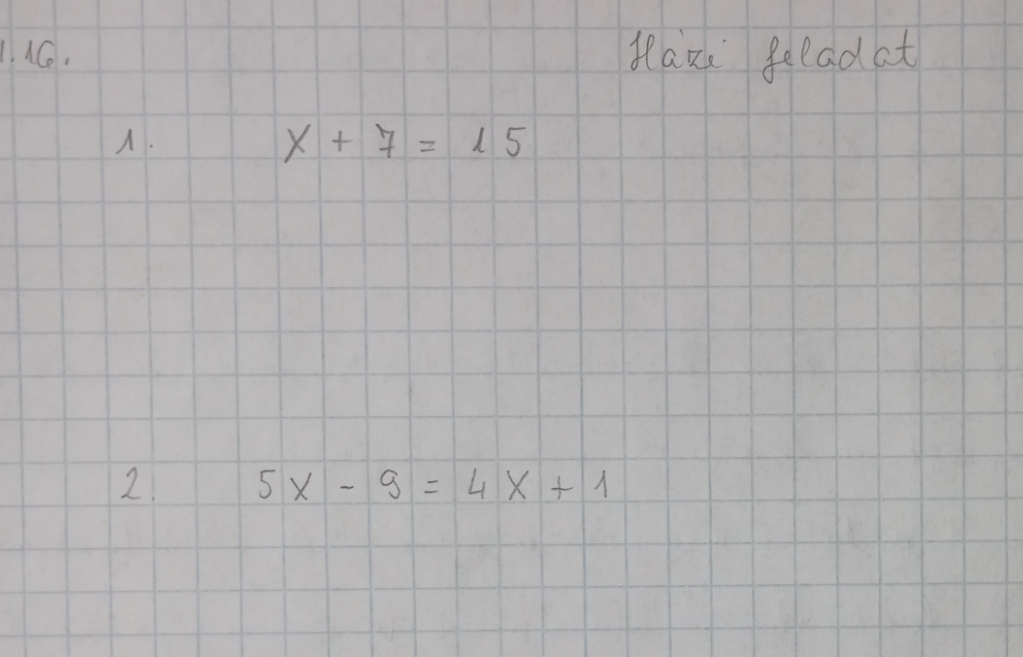 1.16. Házi feladat
1. x + 7 = 15
2. 5x - 9 = 4x + 1